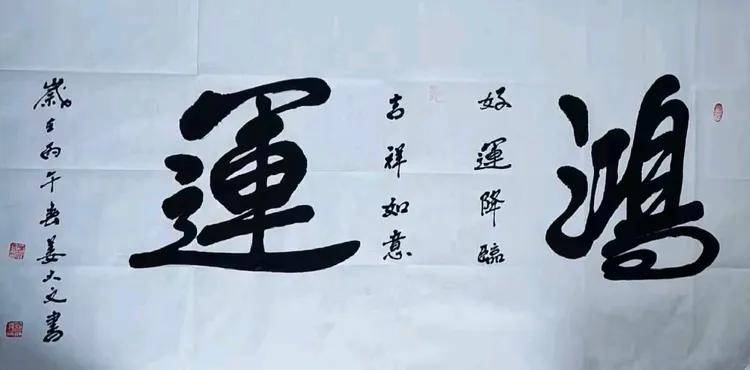 鴻
好運降臨
吉祥如意
運
歲在丙午春姜大文書